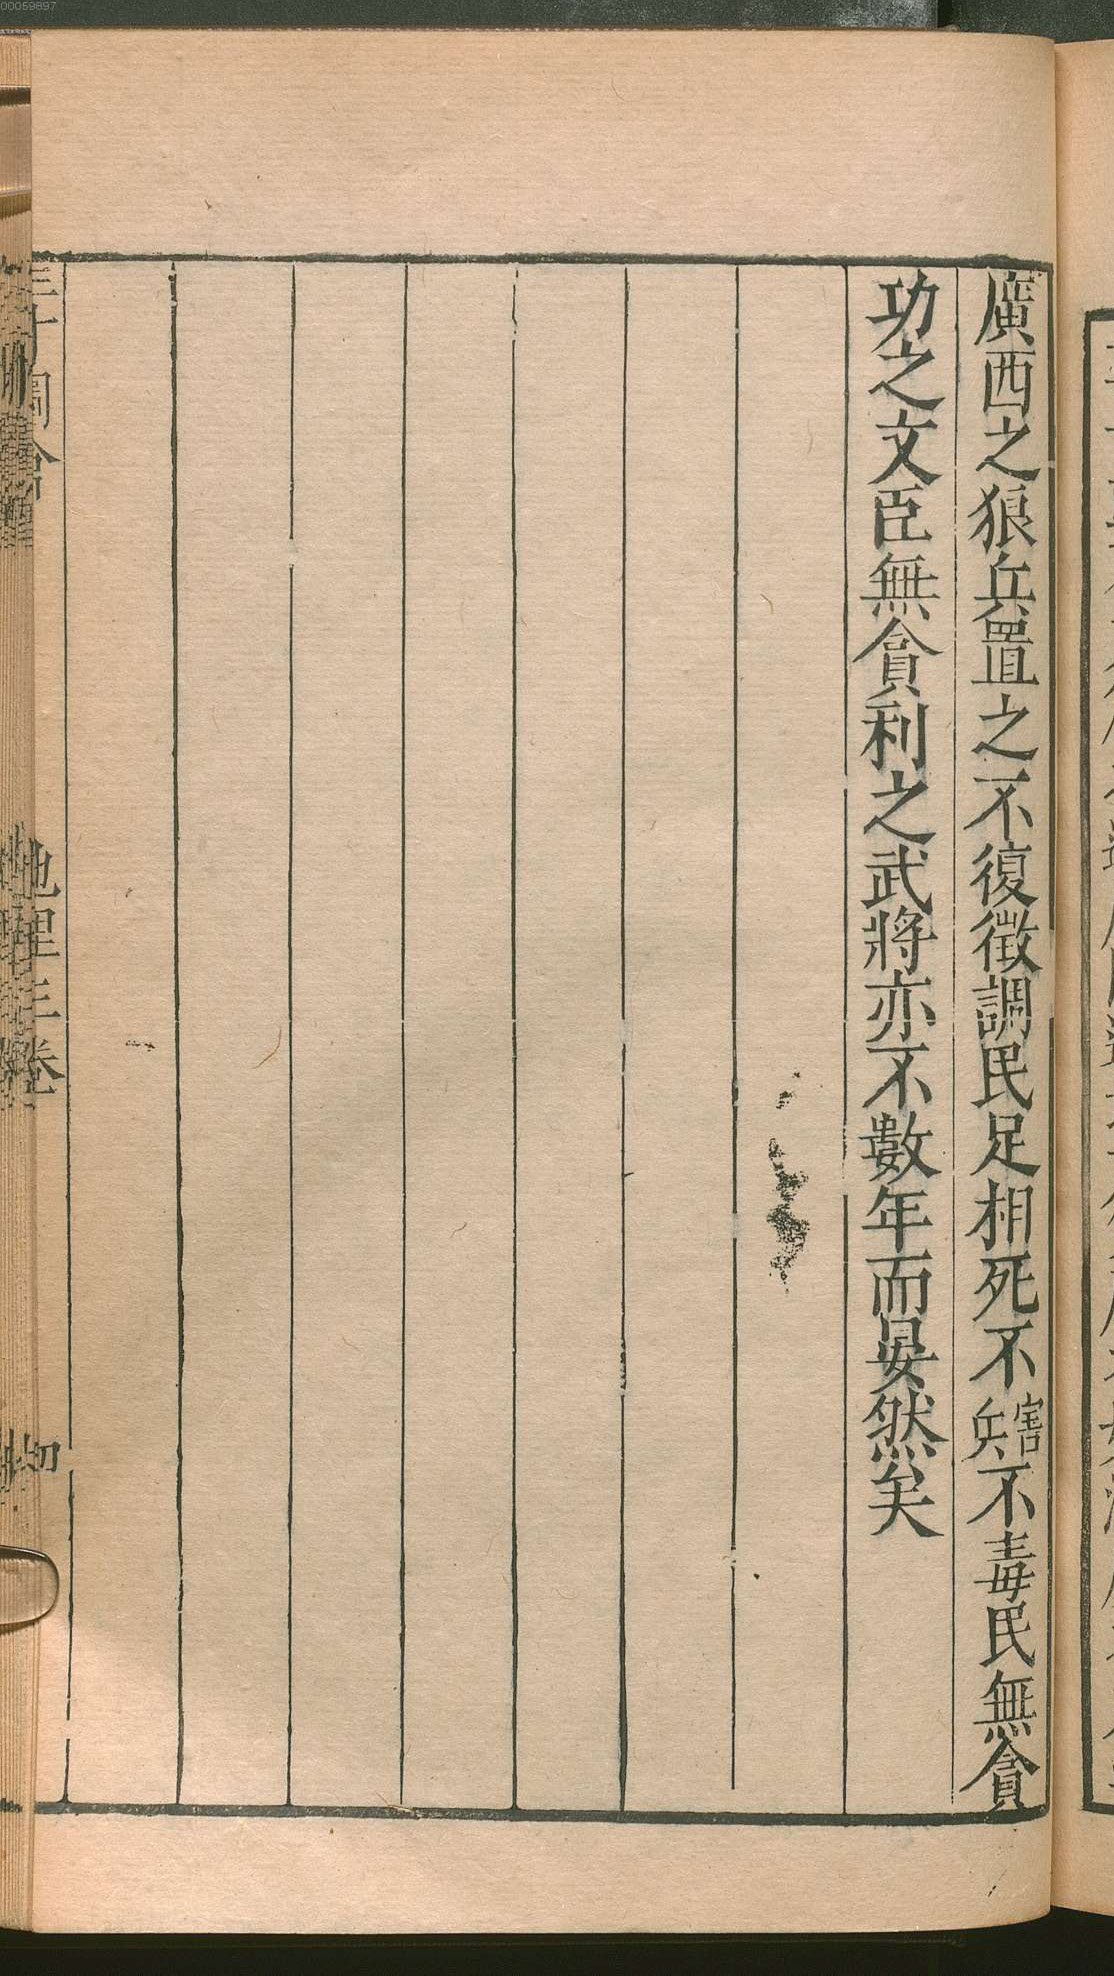 廣西之狼兵置之不復徵調民足相死不害兵不毒民無貪
功之文臣無貪利之武將亦不數年而晏然矣
地理三卷
00059897